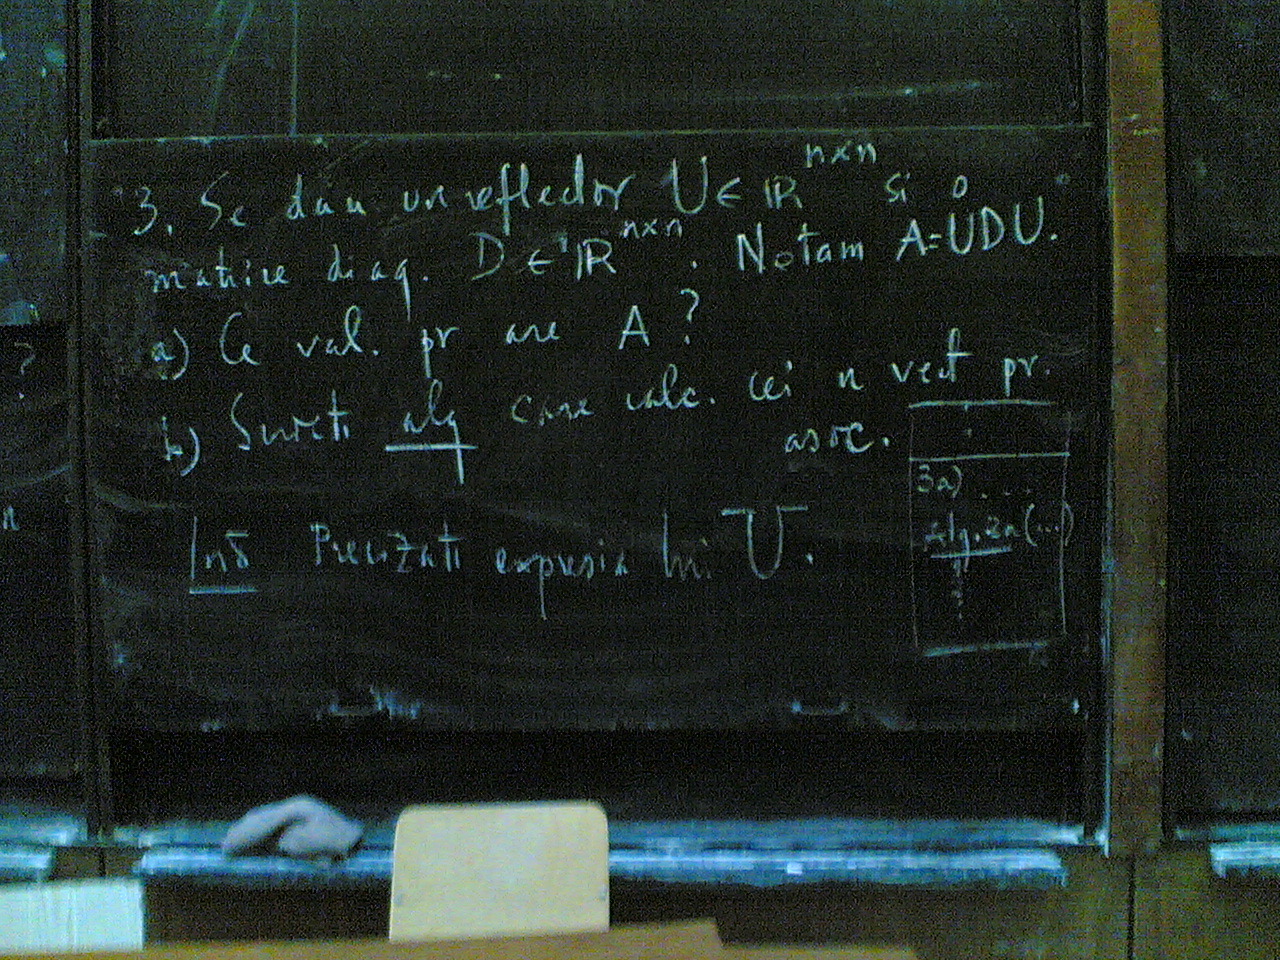 3. Se dau un reflector U ∈ ℝ^{n×n} si o
matrice diag. D ∈ ℝ^{n×n}. Notam A=UDU.
a) Ce val. pr are A?
b) Scrieti alg care calc. cei n vect pr.
asoc.
Ind Precizati expresia lui U.
3a) ...
Alg. (...)
?
n